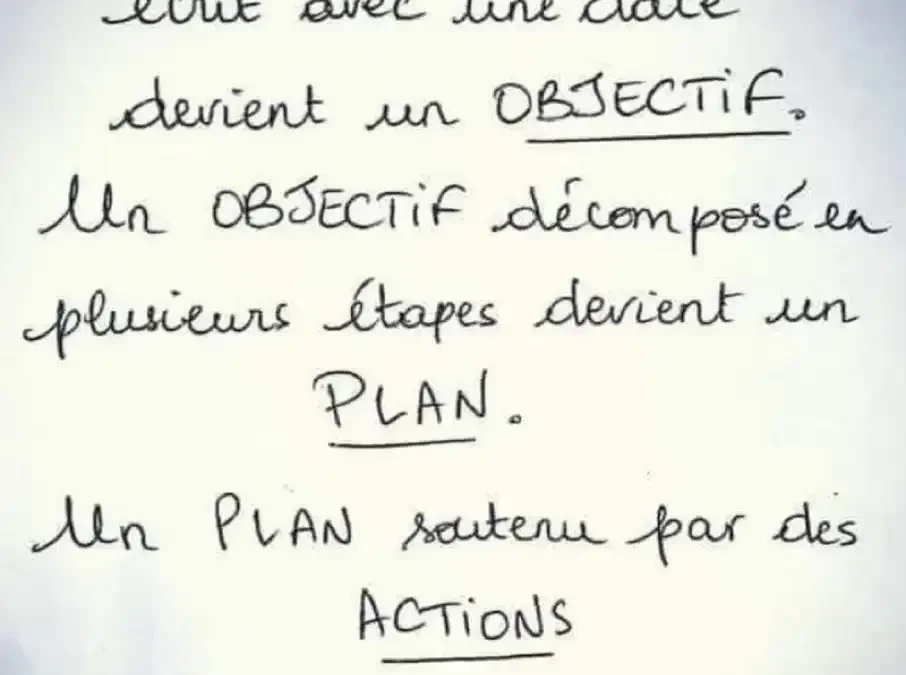 écrit avec une date
devient un OBJECTIF.
Un OBJECTIF décomposé en
plusieurs étapes devient un
PLAN.
Un PLAN soutenu par des
ACTIONS